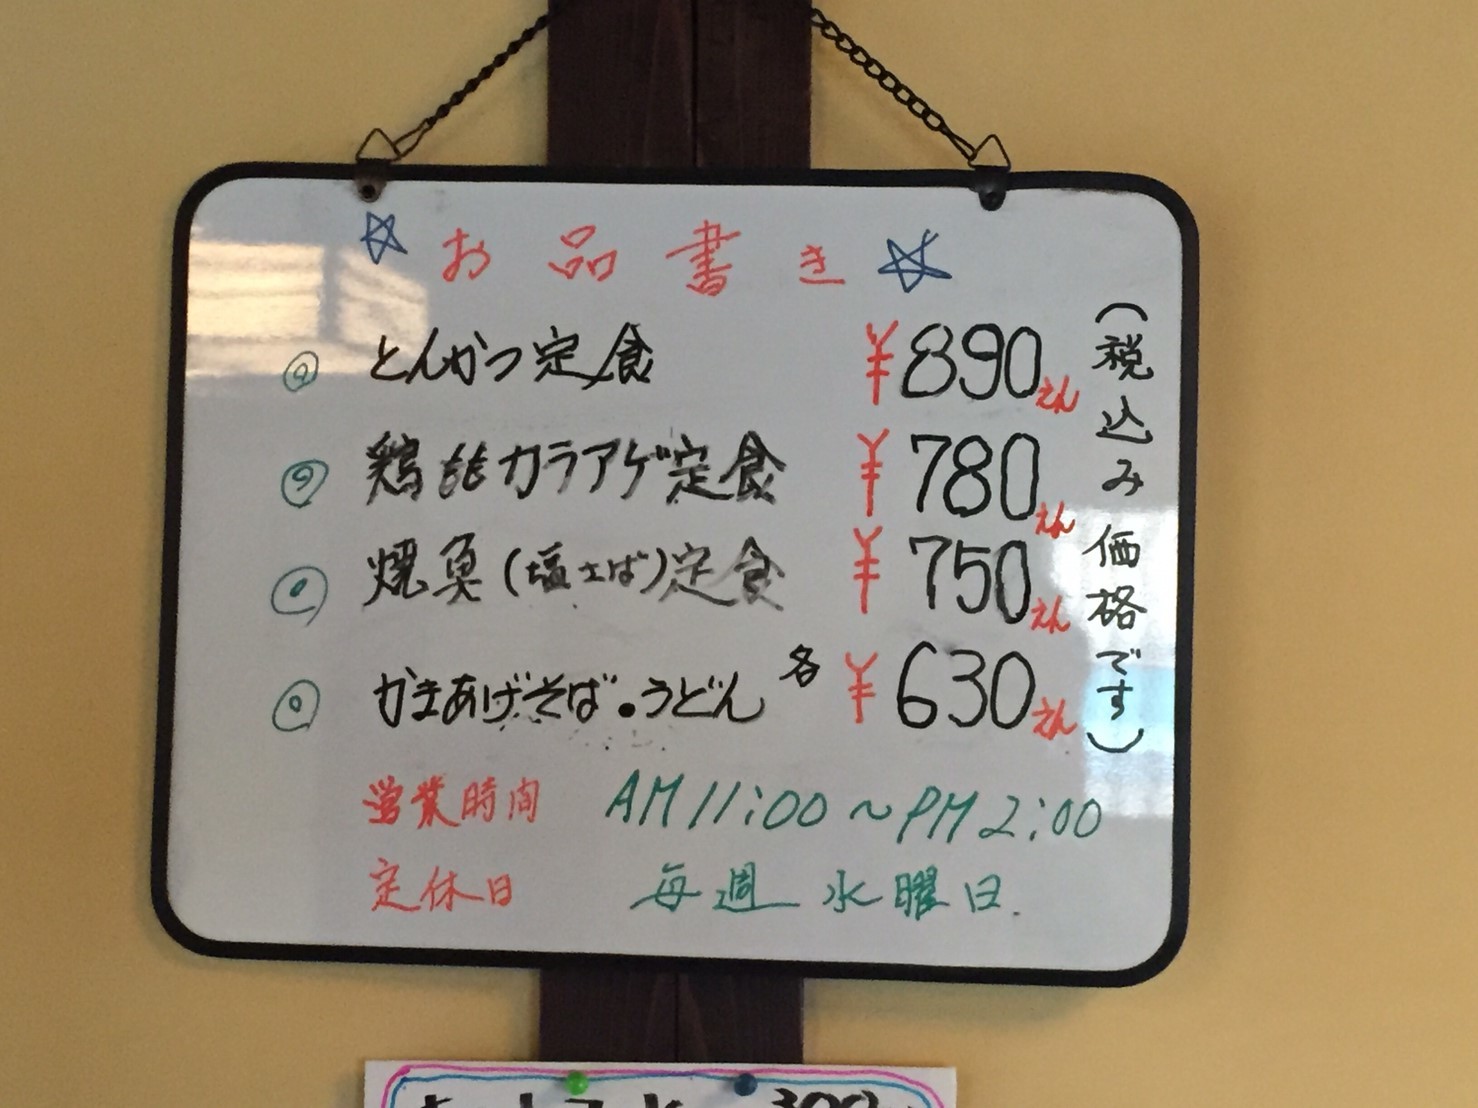 ☆お品書き☆
◎ とんかつ定食 ¥890えん
◎ 鶏ももカラアゲ定食 ¥780えん
◎ 焼魚(塩さば)定食 ¥750えん
◎ かきあげそば・うどん 各 ¥630えん
(税込み価格です)
営業時間 AM11:00~PM2:00
定休日 毎週 水曜日.